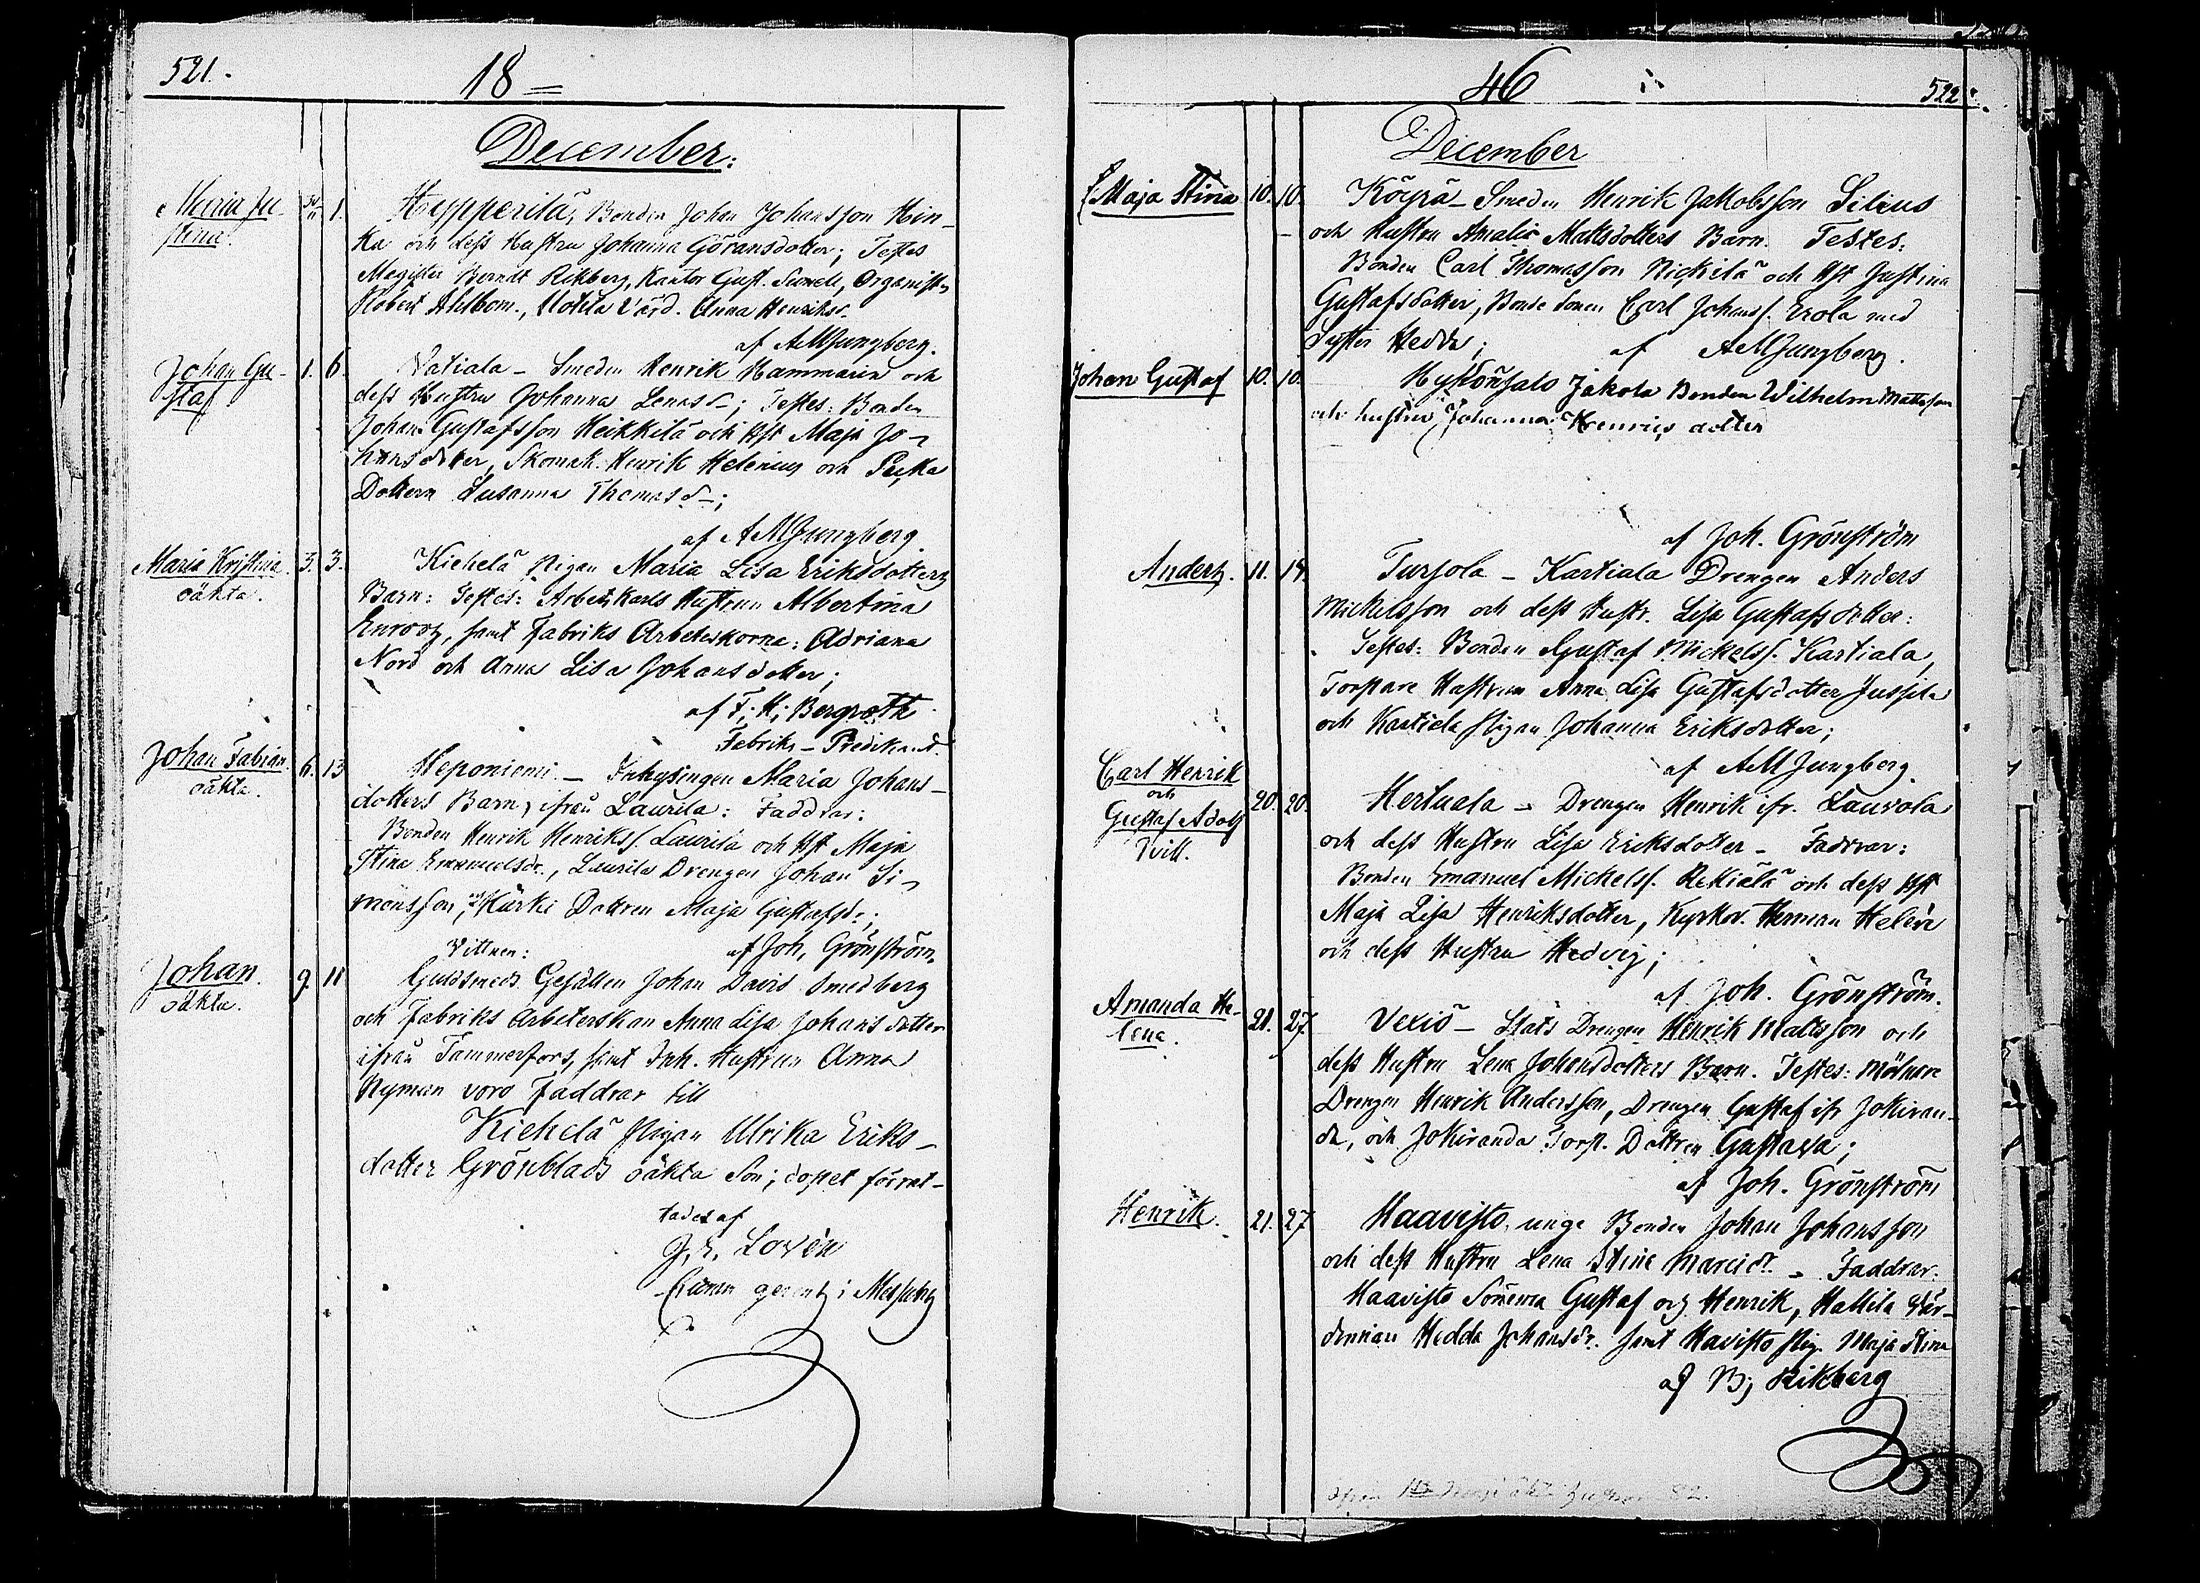 521.
18
December.
Maria Ju-
stina.
30/11 1.
Hypperilä, Bonden Johan Johansson Hin-
ka och dess Hustru Johanna Göransdotter; Testes
Magister Berndt Rikberg, Kantor Gust. Sumell, Organist
Robert Ahlbom., Uotila Värd. Anna Henriksdr
af AMJungberg.
Johan Gu-
staf
1. 6.
Vatiala – Smeden Henrik Hammarin och
dess Hustru Johanna Lenasd–; Testes: Bonden
Johan Gustafsson Heikkilä och Hst Maja Jo-
hansdotter, Skomak. Henrik Helenius och
Dottern Susanna Thomasd–;
af AMJungberg
Maria Kristina
oäkta.
3. 3.
Kiehelä Pigan Maria Lisa Eriksdotters
Barn: Testes: Arbets Karls Hustrun Albertina
Enroos, samt Fabriks Arbeterskorna: Adriana
Nord och Anna Lisa Johansdotter;
af F. H; Bergroth
Fabriks – Predikant
Johan Fabian.
oäkta.
6. 13
Heponiemi – Inhysingen Maria Johans-
dotters Barn, ifrån Laurila: Faddrar:
Bonden Henrik Henrikss. Laurila och Hst Maja
Stina Emanuelsdr., Laurila Drengen Johan Si-
monsson, och Kurki Dottren Maja Gustafsdr.;
Vittnen:
af Joh. Grönström.
Johan.
oäkta.
9. 11
Guldsmeds Gesällen Johan David Smedberg
och Fabriks Arbeterskan Anna Lisa Johansdotter
ifrån Tammerfors, samt Inh. Hustrun Anna
Nyman voro Faddrar till
Kiehelä Pigan Ulrika Eriks-
dotter Grönblads oäkta Son; dopet förrät-
tades af
J. E. Lovén
i Messuby
46
522.
December
Maja Stina
10. 10.
Köyrä – Smeden Henrik Jakobsson Silius
och Hustru Amalia Mattsdotters Barn. Testes:
Bonden Carl Thomasson Nickilä och Hst Justina
Gustafsdotter, Bonde Sonen Carl Johanss. Erola med
Syster Hedda;
af AMJungberg.
Johan Gustaf
10. 10.
Hyhönsalo Jakola Bonden Wilhelm Mattsson
och hustru Johanna Henriks dotter
af Joh. Grönström
Anders.
11. 19.
Tursola – Kartiala Drengen Anders
Mickelsson och dess Hustr. Lisa Gustafsdotter:
Testes: Bonden Gustaf Mickelss. Kartiala,
Torpare Hustrun Anna Lisa Gustafsdotter Jussila
och Kartiala Pigan Johanna Eriksdotter;
af AMJungberg.
Carl Henrik
och
Gustaf Adolf
Tvill.
20. 20.
Hertuala – Drengen Henrik ifr. Laurola
och dess Hustru Lisa Eriksdotter – Faddrar:
Bonden Emanuel Mickelss. Rekiälä och dess Hst
Maja Lisa Henriksdotter, Kyrkov. Herman Helén
och dess Hustru Hedvig;
af Joh. Grönström.
Amanda He-
lena.
21. 27.
Vexiö – Stats Drengen Henrik Mattsson och
dess Hustru Lena Johansdotters Barn. Testes: Mölnare
Drengen Henrik Andersson, Drengen Gustaf ifr Jokiran-
da, och Jokiranda Torp. Dottren Gustava;
af Joh. Grönström
Henrik.
21. 27
Haavisto unge Bonden Johan Johansson
och dess Hustru Lena Stina Marcidr. – Faddrar:
Haavisto Sönerna Gustaf och Henrik, Mattila Vär-
dinnan Hedda Johansdr. samt Havisto Pig. Maja Stina
af B; Rikberg